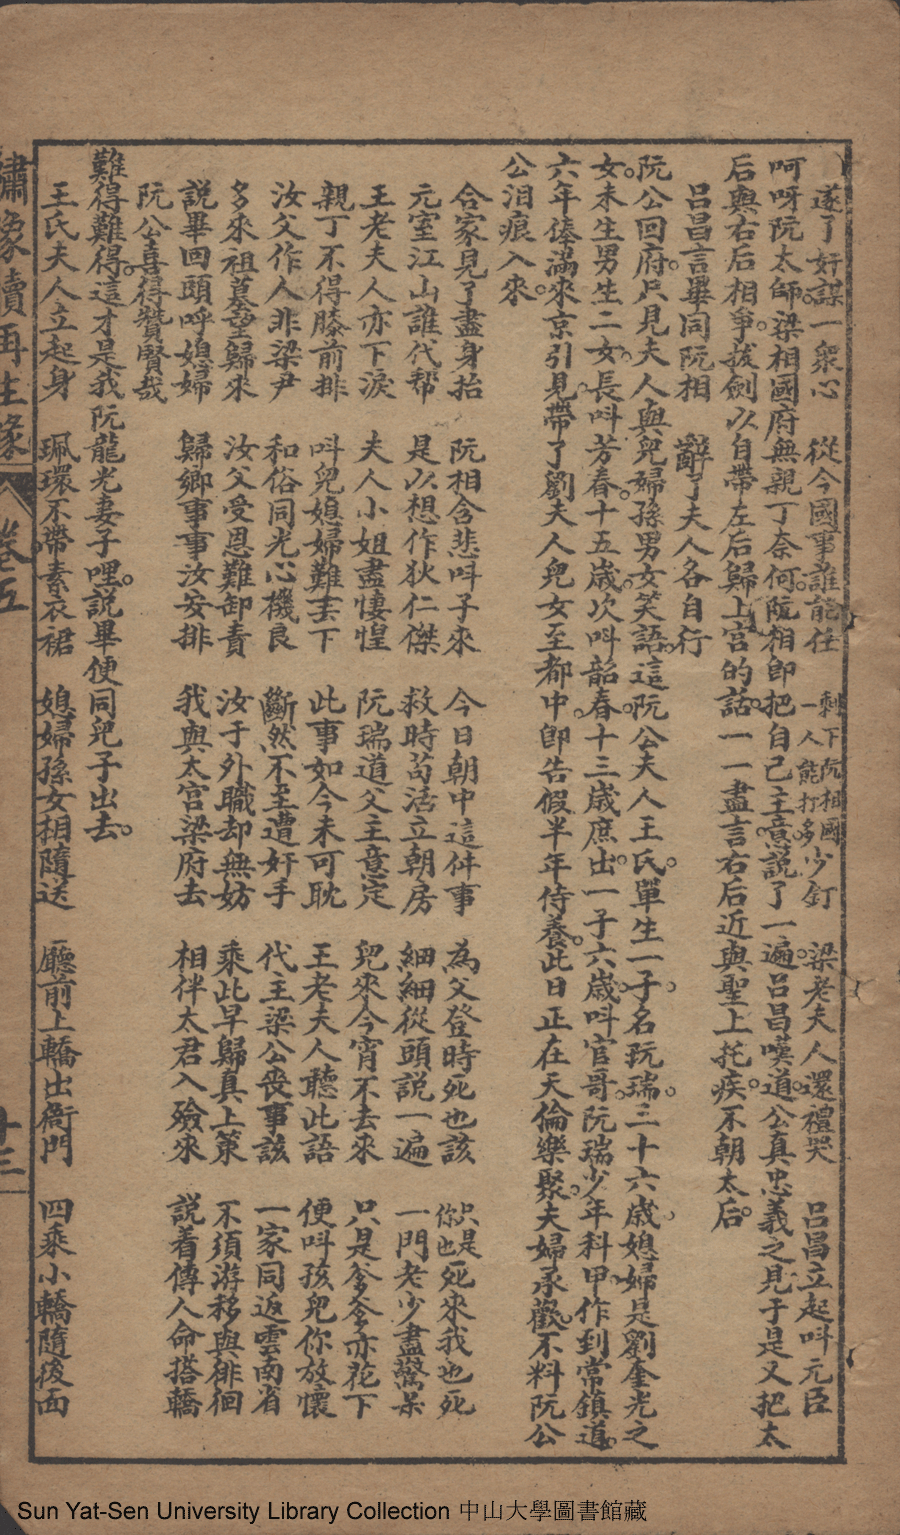 遂了奸謀一衆心　從今國事誰能任　剩下阮相國一人能打多少釘　梁老夫人還禮哭　呂昌立起呌元臣
呵呀阮太師梁相國府無親丁奈何阮相卽把自己主意説了一遍呂昌嘆道公真忠義之見于是又把太
后與右后相爭拔劍以自帶左后歸上宫的話一一盡言右后近與聖上托疾不朝太后
呂昌言畢同阮相　辭了夫人各自行
阮公回府只見夫人與兒婦孫男女笑語這阮公夫人王氏單生一子名阮瑞三十六歲媳婦是劉奎光之
女未生男生二女長呌芳春十五歲次呌韶春十三歲庶出一子六歲呌官哥阮瑞少年科甲作到常鎮道
六年俸滿來京引見帶了劉夫人兒女至都中卽告假半年侍養此日正在天倫樂聚夫婦承歡不料阮公
公泪痕入來
合家見了盡身抬　阮相含悲呌子來　今日朝中這件事　為父登時死也該　只是你也死來我也死
元室江山誰代帮　是以想作狄仁傑　救時苟活立朝房　細細從頭説一遍　一門老少盡驚呆
王老夫人亦下淚　夫人小姐盡悽惶　阮瑞道父主意定　兒來今宵不去來　只是爹爹亦花下
親丁不得膝前排　呌兒媳婦難丟下　此事如今未可耽　王老夫人聽此語　便呌孩兒你放懷
汝父作人非梁尹　和俗同光心機良　斷然不至遭奸手　代主梁公喪事該　一家同返雲南省
多來祖墓望歸來　汝父受恩難卸責　汝于外職却無妨　乘此早歸真上策　不須游移與徘徊
説畢回頭呼媳婦　歸鄉事事汝安排　我與太宫梁府去　相伴太君入殮來　説着傳人命搭轎
阮公喜得贊賢哉
難得難得這才是我阮龍光妻子哩説畢便同兒子出去
王氏夫人立起身　珮環不帶素衣裙　媳婦孫女相隨送　廳前上轎出衙門　四乘小轎隨後面
繡像續再生緣　卷五　十三
Sun Yat-Sen University Library Collection 中山大學圖書館藏